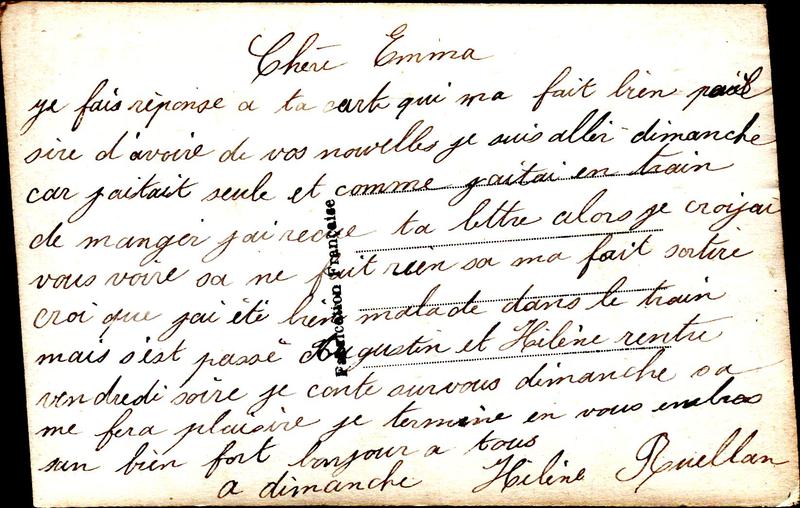 Chère Emma
je fais réponse a ta carte qui ma fait bien plai
sire d'avoire de vos nouvelles je suis aller dimanche
car jaitait seule et comme jaitai en train
de manger jai recue ta lettre alors je croijai
vous voire sa ne fait rien sa ma fait sortire
croi que jai été bien malade dans le train
mais s'est passé Augustin et Hélène rentre
vendredi soire je conte sur vous dimanche sa
me fera plaisire je termine en vous embras
san bien fort bonjour a tous
a dimanche Hélène Ruellan
Fabrication Française